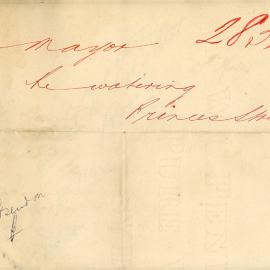 Mayor 28
he watering
Princes St